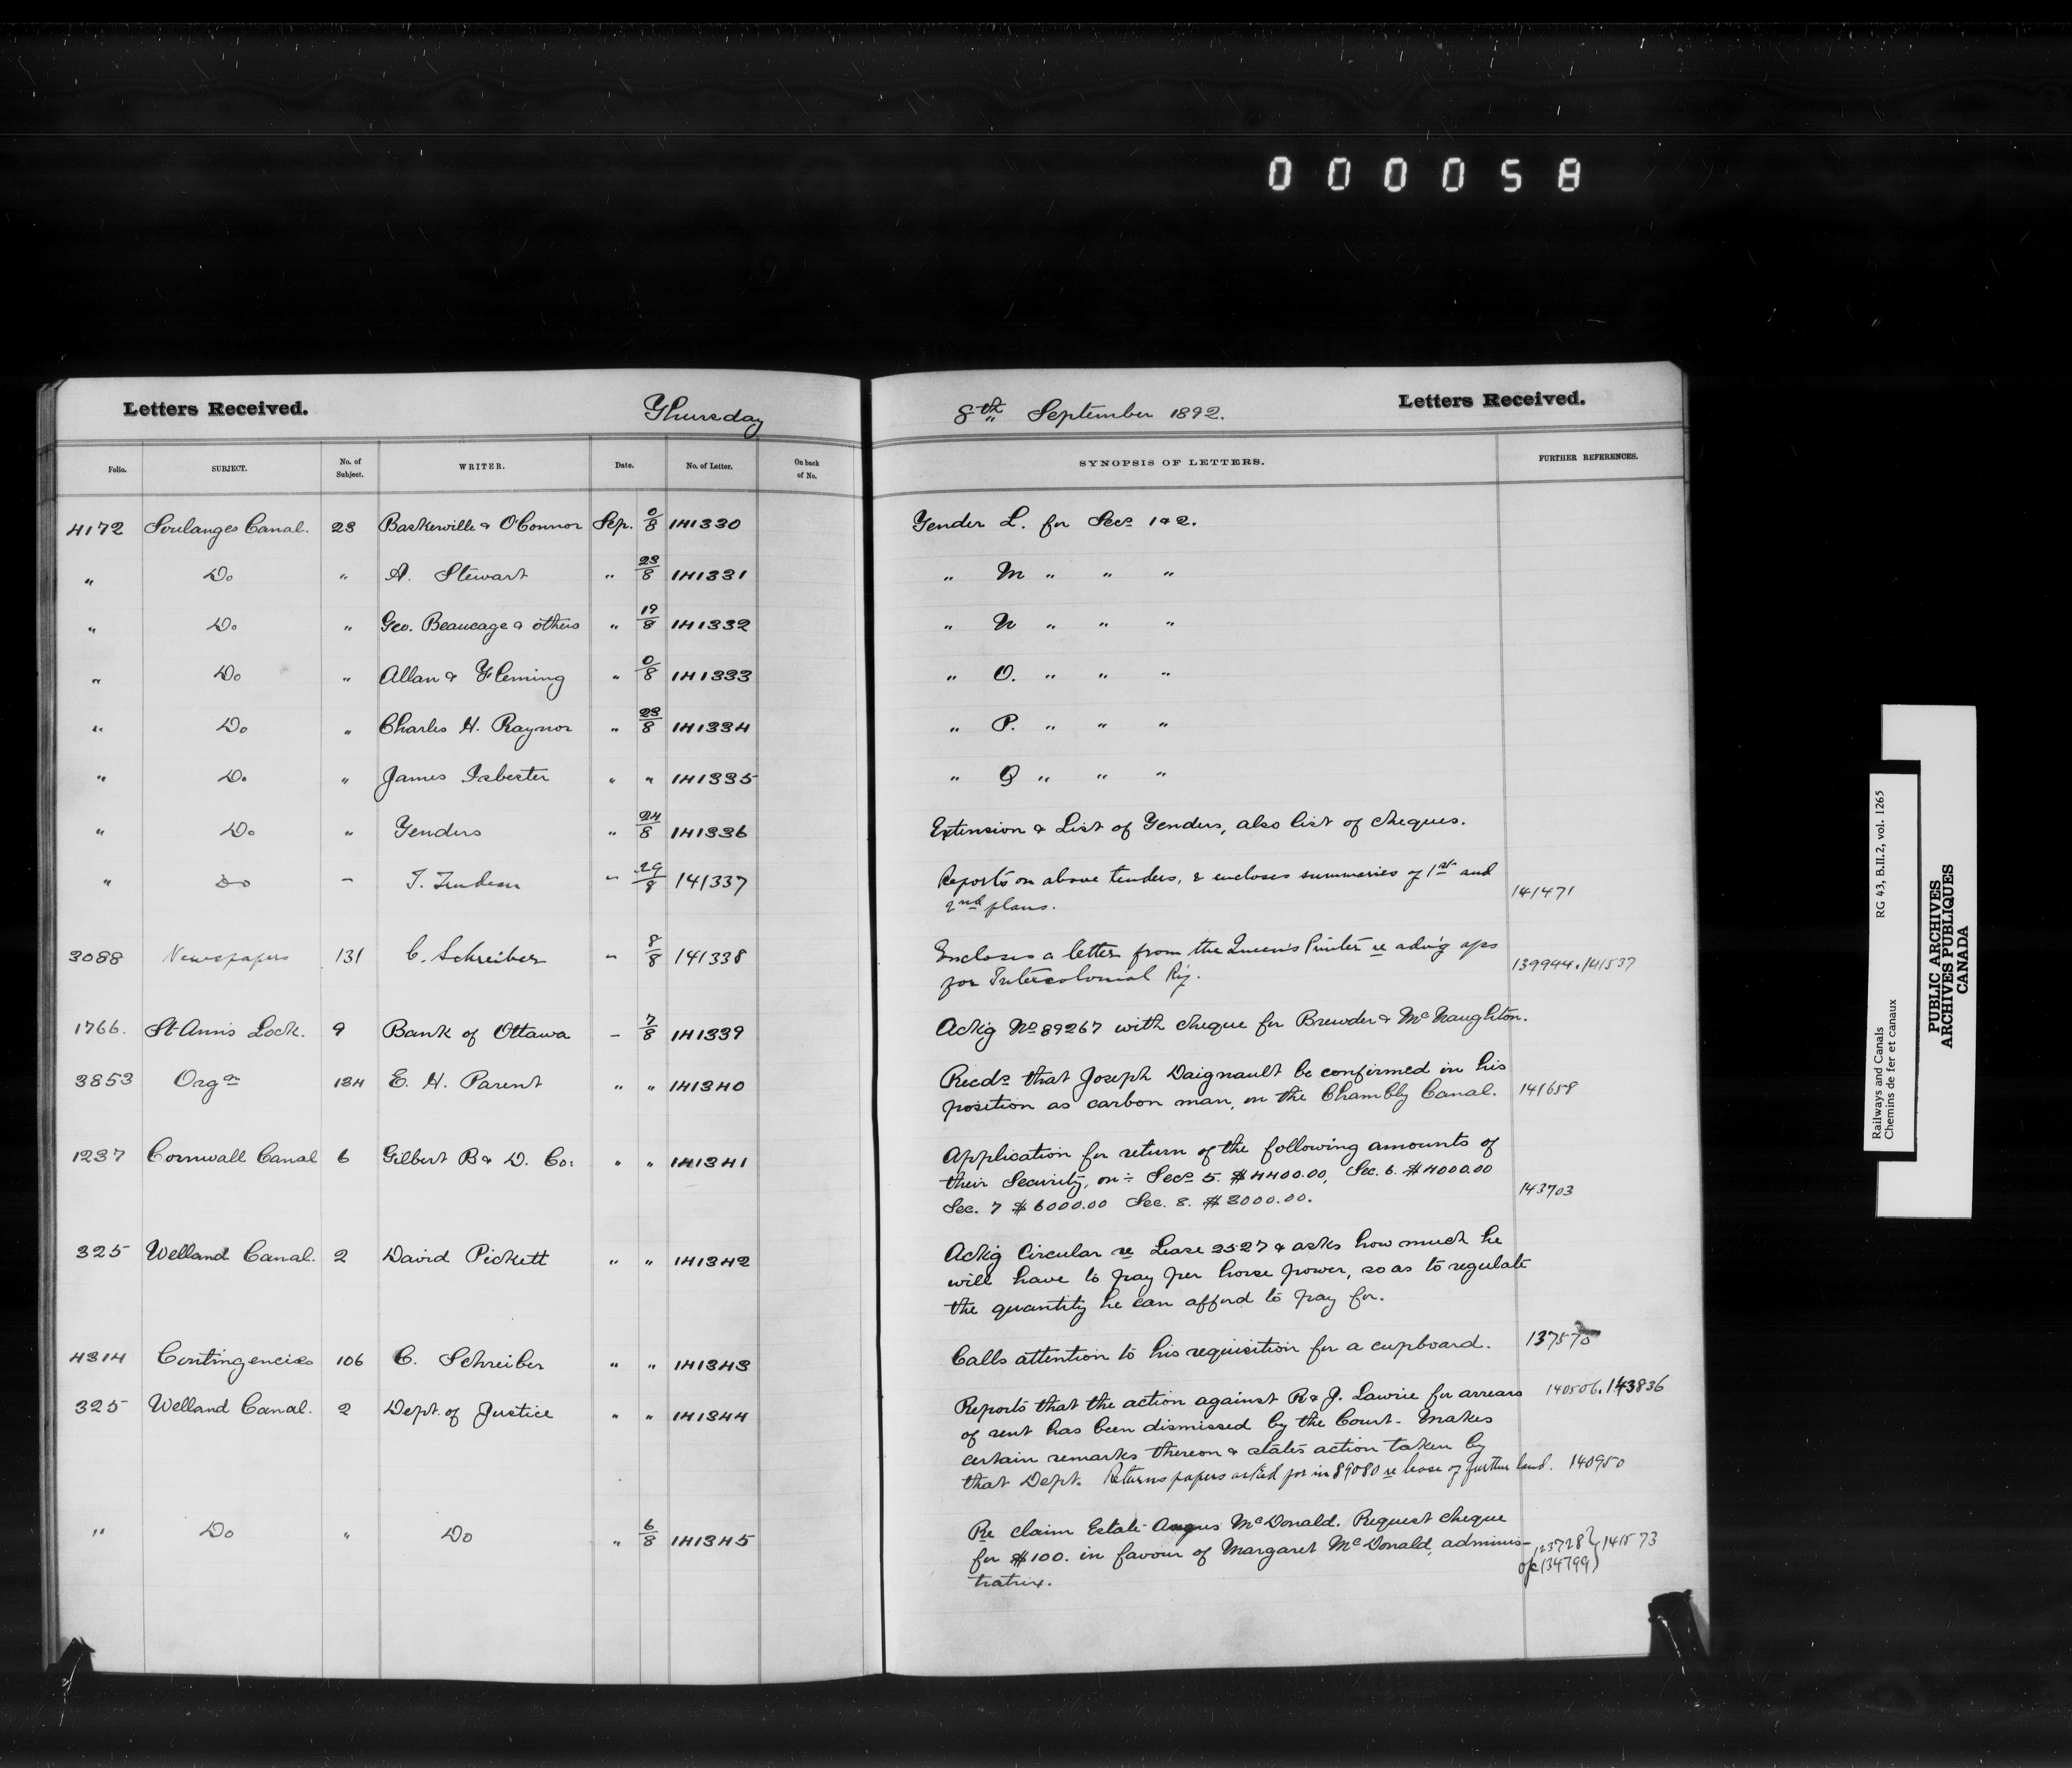 0 0 0 0 5 8
Letters Received.
Thursday
8th September 1892.
Letters Received.
Folio. SUBJECT. No. of Subject. WRITER. Date. No. of Letter. On back of No. SYNOPSIS OF LETTERS. FURTHER REFERENCES.
4172 Soulanges Canal. 23 Baskerville & O'Connor Sep. 0/8 141330 Tender L. for Secs 1 & 2.
" Do " A. Stewart " 23/8 141331 " M " " "
" Do " Geo. Beaucage & others " 19/8 141332 " N " " "
" Do " Allan & Fleming " 0/8 141333 " O. " " "
" Do " Charles H. Raynor " 23/8 141334 " P. " " "
" Do " James Isbester " " 141335 " Q " " "
" Do " Tenders " 24/8 141336 Extension & List of Tenders, also list of cheques.
" Do – T. Trudeau " 29/8 141337 Reports on above tenders, & encloses summaries of 1st and
2nd plans. 141471
3088 Newspapers 131 C. Schreiber " 8/8 141338 Encloses a letter from the Queen's Printer re adv'g a/cs
for Intercolonial Ry. 139994. 141537
1766. St Ann's Lock. 9 Bank of Ottawa – 7/8 141339 Ack'g No 89267 with cheque for Brewder & McNaughton.
3853 Orgn 134 E. H. Parent " " 141340 Recds that Joseph Daignault be confirmed in his
position as carbon man, on the Chambly Canal. 141658
1237 Cornwall Canal 6 Gilbert B & D. Co: " " 141341 Application for return of the following amounts of
their Security, on ÷ Secs 5. $4400.00, Sec. 6. $4000.00
Sec. 7 $6000.00 Sec. 8. $3000.00. 143703
325 Welland Canal. 2 David Pickett " " 141342 Ack'g Circular re Lease 2527 & asks how much he
will have to pay per horse power, so as to regulate
the quantity he can afford to pay for.
4314 Contingencies 106 C. Schreiber " " 141343 Calls attention to his requisition for a cupboard. 137570
325 Welland Canal. 2 Dept. of Justice " " 141344 Reports that the action against R & J. Lawrie for arrears 140506. 143836
of rent has been dismissed by the Court. Makes
certain remarks thereon & states action taken by
that Dept. Returns papers asked for in 89080 re lease of further land. 140950
" Do " Do " 6/8 141345 Re claim Estate Angus McDonald. Request cheque
for $100. in favour of Margaret McDonald, adminis- 23728 } 141573
tratrix. 134799
Railways and Canals RG 43, B.II.2, vol. 1265
Chemins de fer et canaux
PUBLIC ARCHIVES
ARCHIVES PUBLIQUES
CANADA